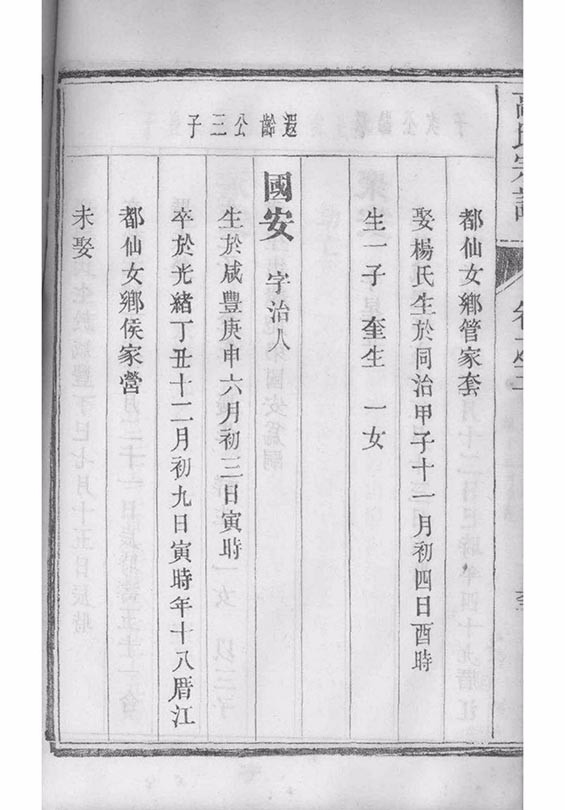 都仙女鄉管家套
娶楊氏生於同治甲子十一月初四日酉時
生一子奎生 一女
遐齡公三子
國安 字治人
生於咸豐庚申六月初三日寅時
卒於光緒丁丑十二月初九日寅時年十八厝江
都仙女鄉侯家營
未娶